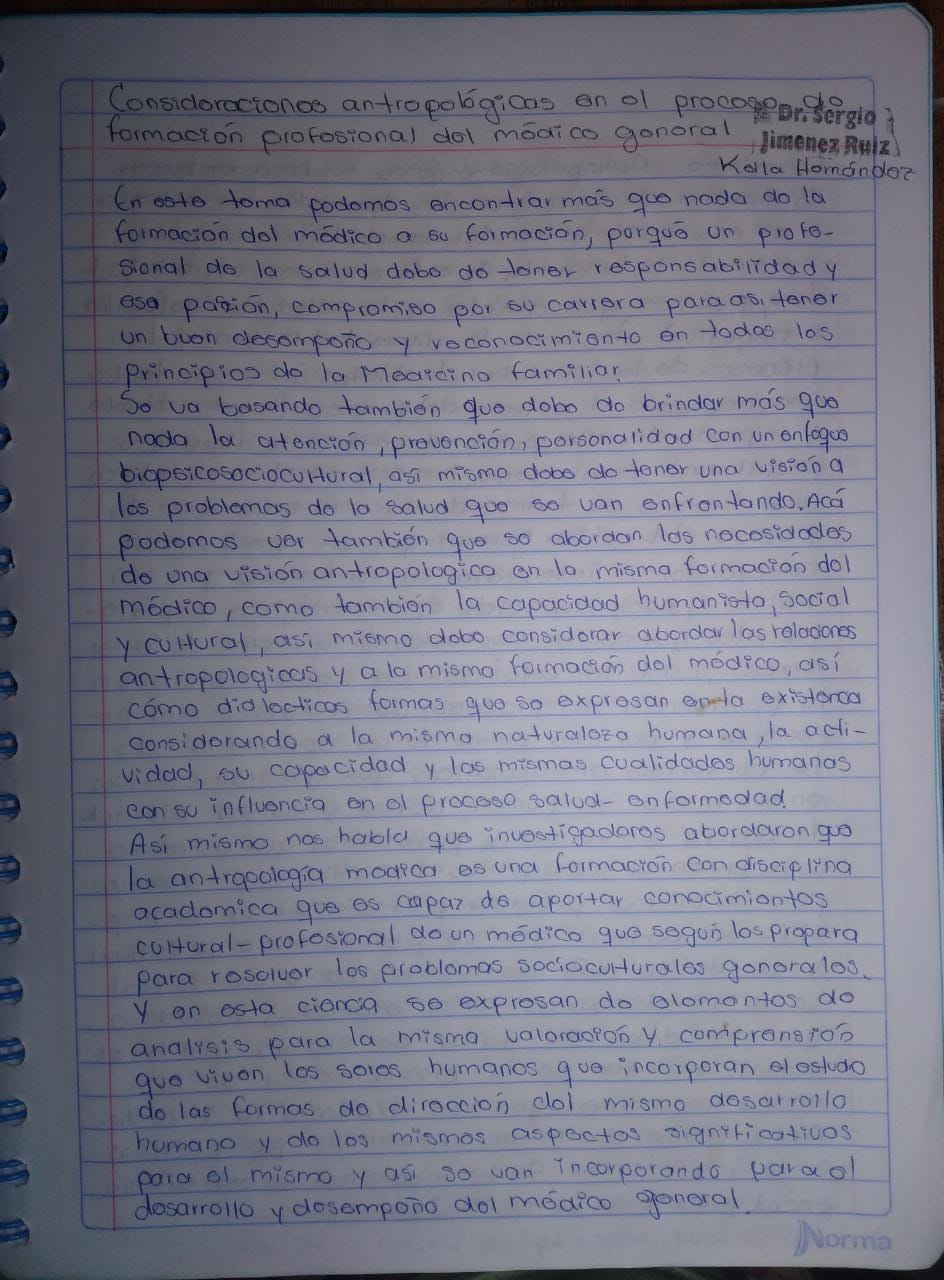 Consideraciones antropológicas en el proceso de
formación profesional del médico general
Dr. Sergio
Jimenez Ruiz
Keila Hernández
En este tema podemos encontrar más que nada de la
formación del médico a su formación, porqué un profe-
sional de la salud debe de tener responsabilidad y
esa pasión, compromiso por su carrera para así tener
un buen desempeño y reconocimiento en todas los
principios de la Medicina familiar.
Se va basando también que debe de brindar más que
nada la atención, prevención, personalidad con un enfoque
biopsicosociocultural, así mismo debe de tener una visión a
los problemas de la salud que se van enfrentando. Acá
podemos ver también que se abordan las necesidades
de una visión antropologica en la misma formación del
médico, como también la capacidad humanista, social
y cultural, así mismo debe considerar abordar las relaciones
antropologicas y a la misma formación del médico, así
cómo dialecticas formas que se expresan en la existenca
considerando a la misma naturaleza humana, la acti-
vidad, su capacidad y las mismas cualidades humanas
con su influencia en el proceso salud-enfermedad
Así mismo nos habla que investigadores abordaron que
la antropología medica es una formación con disciplina
academica que es capaz de aportar conocimientos
cultural-profesional de un médico que según los prepara
para resolver los problemas socioculturales generales.
Y en esta ciencia se expresan de elementos de
analisis para la misma valoración y comprensión
que viven los seres humanos que incorporan el estudo
de las formas de dirección del mismo desarrollo
humano y de los mismos aspectos significativos
para el mismo y así se van incorporando para el
desarrollo y desempeño del médico general.
Norma